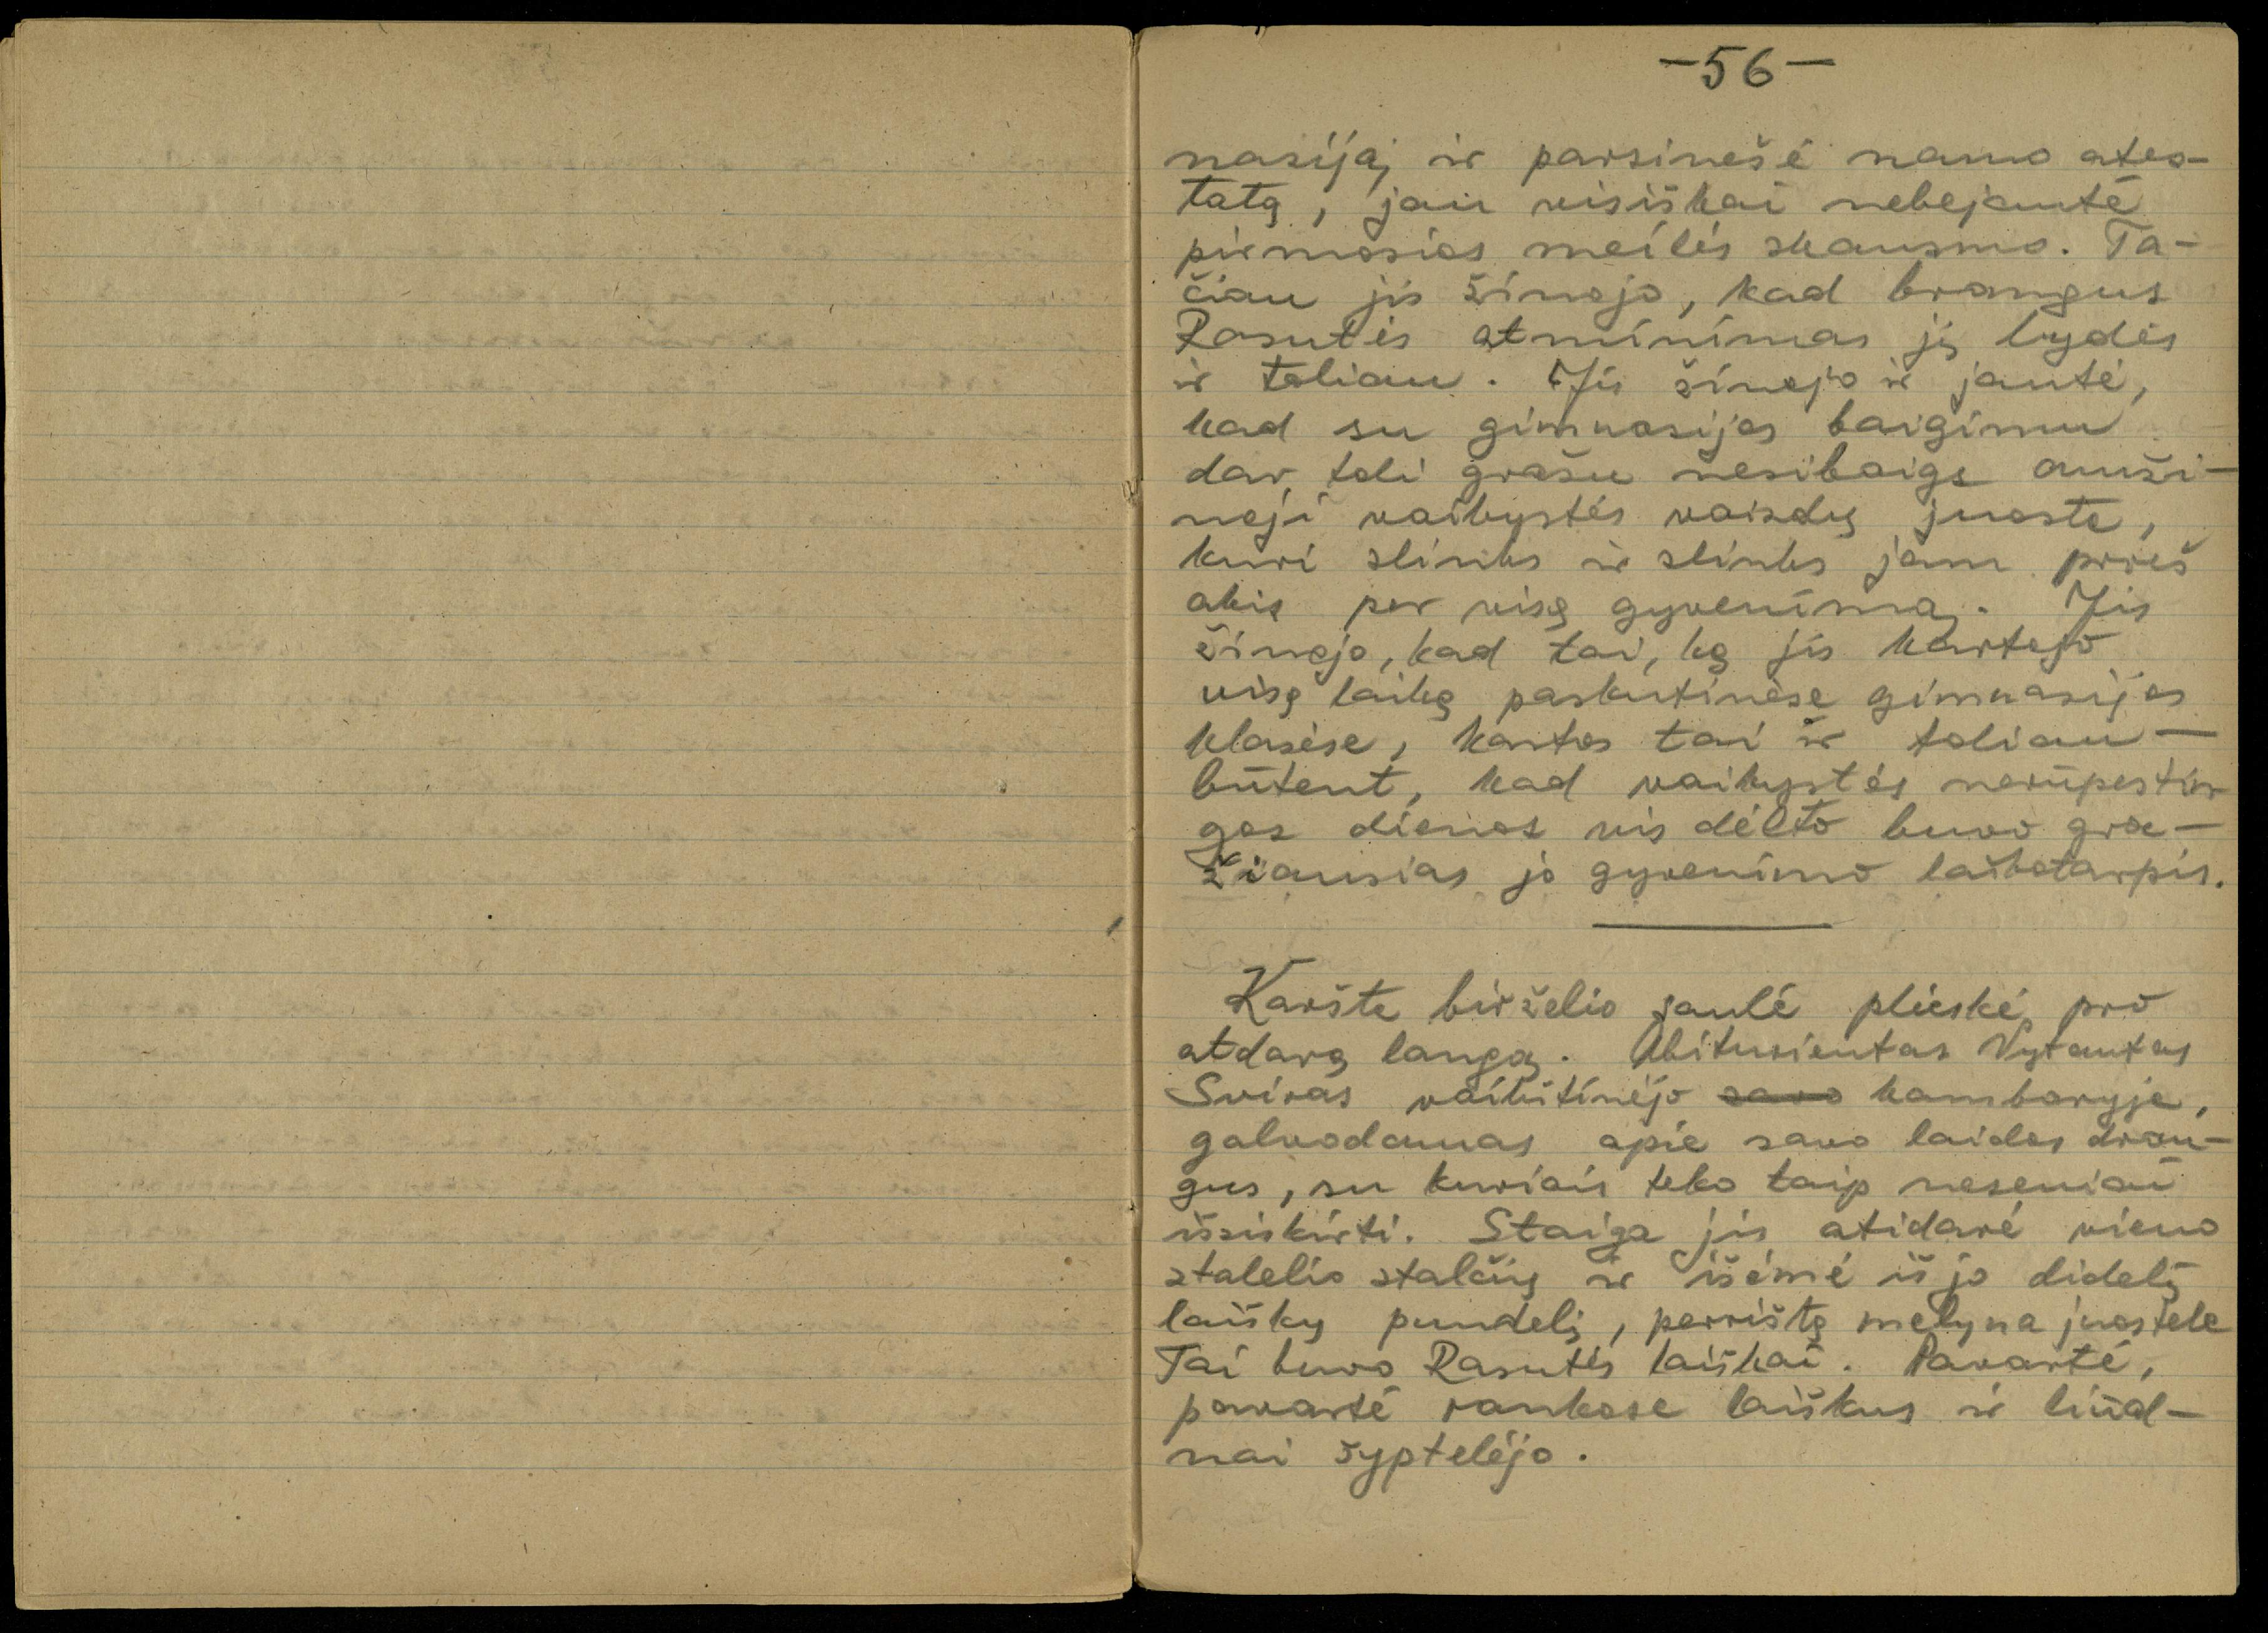 —56—
naziją ir parsinešė namo ates-
tatą, jau visiškai nebejautė
pirmosios meilės skausmo. Ta-
čiau jis žinojo, kad brangus
Rasutės atminimas jį lydės
ir toliau. Jis žinojo ir jautė,
kad su gimnazijos baigimu
dar toli gražu nesibaigė amži-
noji vaikystės vaizdų juosta,
kuri slinks ir slinks jam prieš
akis per visą gyvenimą. Jis
žinojo, kad tai, ką jis kartojo
visą laiką paskutinėse gimnazijos
klasėse, kartos tai ir toliau —
būtent, kad vaikystės nerūpestin-
gos dienos vis dėlto buvo gra-
žiausias jo gyvenimo laikotarpis.
Karšta birželio saulė plieskė pro
atdarą langą. Abiturientas Vytautas
Sviras vaikštinėjo savo kambaryje,
galvodamas apie savo laidos drau-
gus, su kuriais teko taip neseniai
išsiskirti. Staiga jis atidarė vieno
stalelio stalčių ir išėmė iš jo didelį
laiškų pundelį, perrištą mėlyna juostele
Tai buvo Rasutės laiškai. Pavartė,
pavartė rankose laiškus ir liūd-
nai šyptelėjo.